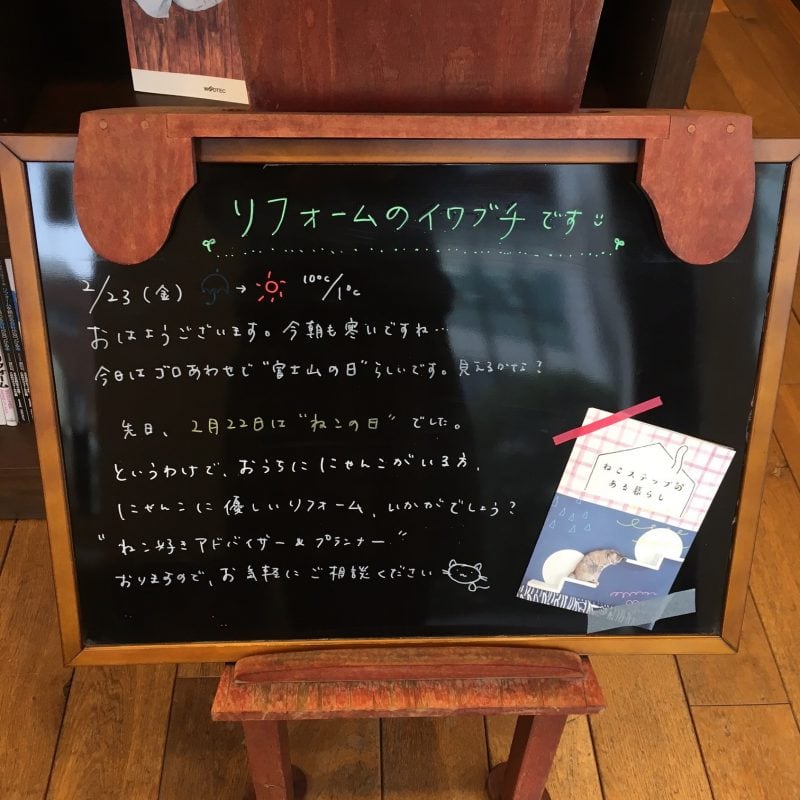 WOODTEC
リフォームのイワブチです
2/23(金) → 10℃/1℃
おはようございます。今朝も寒いですね…
今日はゴロあわせで"富士山の日"らしいです。見えるかな?
先日、2月22日は"ねこの日"でした。
というわけで、おうちに にゃんこがいる方、
にゃんこに優しいリフォーム、いかがでしょう?
"ねこ好きアドバイザー&プランナー"
おりますので、お気軽にご相談ください
ねこステップの
ある暮らし